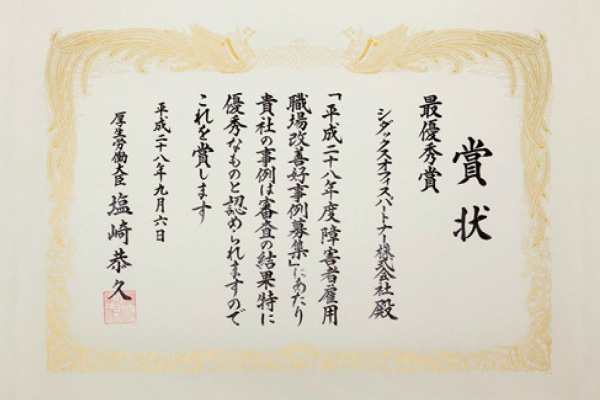 賞状
最優秀賞
シダックスオフィスパートナー株式会社殿
「平成二十八年度障害者雇用
職場改善好事例募集」にあたり
貴社の事例は審査の結果特に
優秀なものと認められますので
これを賞します
平成二十八年九月六日
厚生労働大臣 塩崎恭久